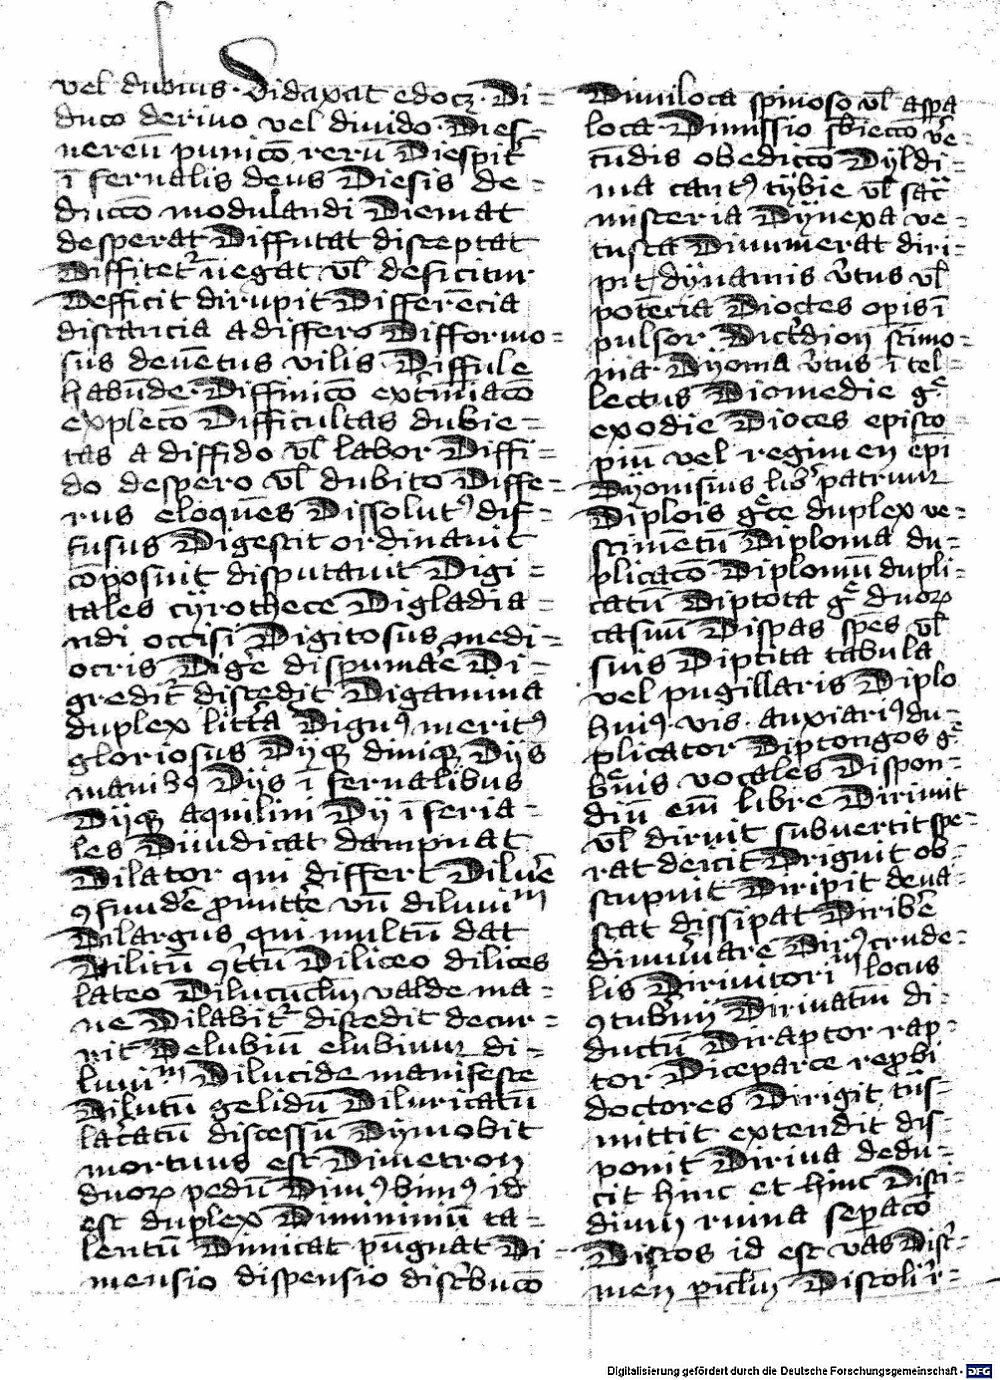 vel dubius · Didaxat edocꝫ · Di=
duco deriuo vel diuido · Dies=
nereū punicō rerū Diespiť
ī fernalis deus Diesis de=
ductō modulandi Diemat
desperat Diffutat disceptat
Diffiteť negat vł deficitur
Defficit dirupit Differēcia
distancia a differo Difformo=
sus deuētus vilis Diffule
habūde · Diffinicō
explecō Difficultas dubie=
tas a diffido vł labor Diffi=
do despero vł dubito Diffe=
rus eloquēs Dissolutꝰ dif=
fusus Digescit ordinauit
cōposuit disputauit Digi=
tales cyrothece Digladia=
ndi occisi Digitosus medi=
ocris Digēe dispumāe Di=
gredit̄ discedit Digamma
duplex litt̄a Dignꝰ meritꝰ
gloriosus Dyqꝫ diuiqꝫ Dyis
manibꝰ Dyis ī fernalibus
Dyqꝫ aquilini Dy īferia=
les Diiudicat dampnat
Dilator qui differt Diluēe
ꝯfundēe ꝓmittēe vn̄ diluuiᵐ
Dilargus qui multū dat
Dilitū Diliceo dilices
lateo Diluculū valde ma=
ne Dilabit̄ discedit decur=
rit Delubiū elubium di=
luuiᵐ Dilucide manifeste
Dilutū gelidū Diluricatū
lac̄atū discessū Dymobit
mortuus est Dimetron
duoꝝ pedū Dimꝰ bimꝰ id
est duplex Dimininiū ta=
lentū Dimicat pūgnat Di=
mensio dispensio dist̄bucō
Dimiloca spinoso vł aspa
loca · Dimissio sbieccō
cūdis obediccō Dyldi=
ma cantꝰ tybie vł sac̄
misteria Dynexa ve=
tusta Dinumerat diri=
pit, dynamis v̄tus vł
potēcia Dioctes opis ī
pulsor Dict̄dion scimo=
nia Dyoma v̄tus ī tel=
lectus Diomedie gᵉ
exodie Dioces episco
piū vel regimen ep̄i
Dyonisius lib̄ patrum
Diplois gᵉce duplex ve=
stimētū Diploma du=
plicacō Diplomū dupli=
catū Diptota gᵉ duoꝝ
casuū Dispas spes vł
suis Diptita tabula
vel pugillaris Diplo
huiꝰ · vis · auxiariꝰ du=
plicator Diptongos gᵉ
bīnis vocales Dispon=
diū eīn libre Dirimit
vł diruit subuertit spe=
rat deicit Driguit ob=
stupuit Diripit deua=
stat dissipat Diribēe
dinumāare Dirꝰ crude=
lis Dirinitoriᵐ locus
ꝯtubīnij Diriuatū di=
ductū Diraptor rap=
tor Diceparce repbi
doctores Dirigit, t̄ns=
mittit extendit dis=
ponit Diriua dedu=
cit hinc et hinc Disci=
dium ruina sepacō
Discos id est vas Disc̄=
men picłm Discoli r̄=
Digitalisierung gefördert durch die Deutsche Forschungsgemeinschaft - DFG